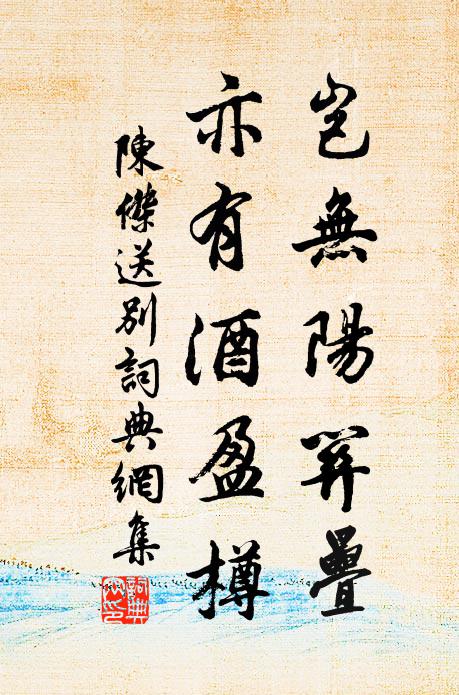 豈無陽關疊
亦有酒盈樽
陳傑送別詞典網集